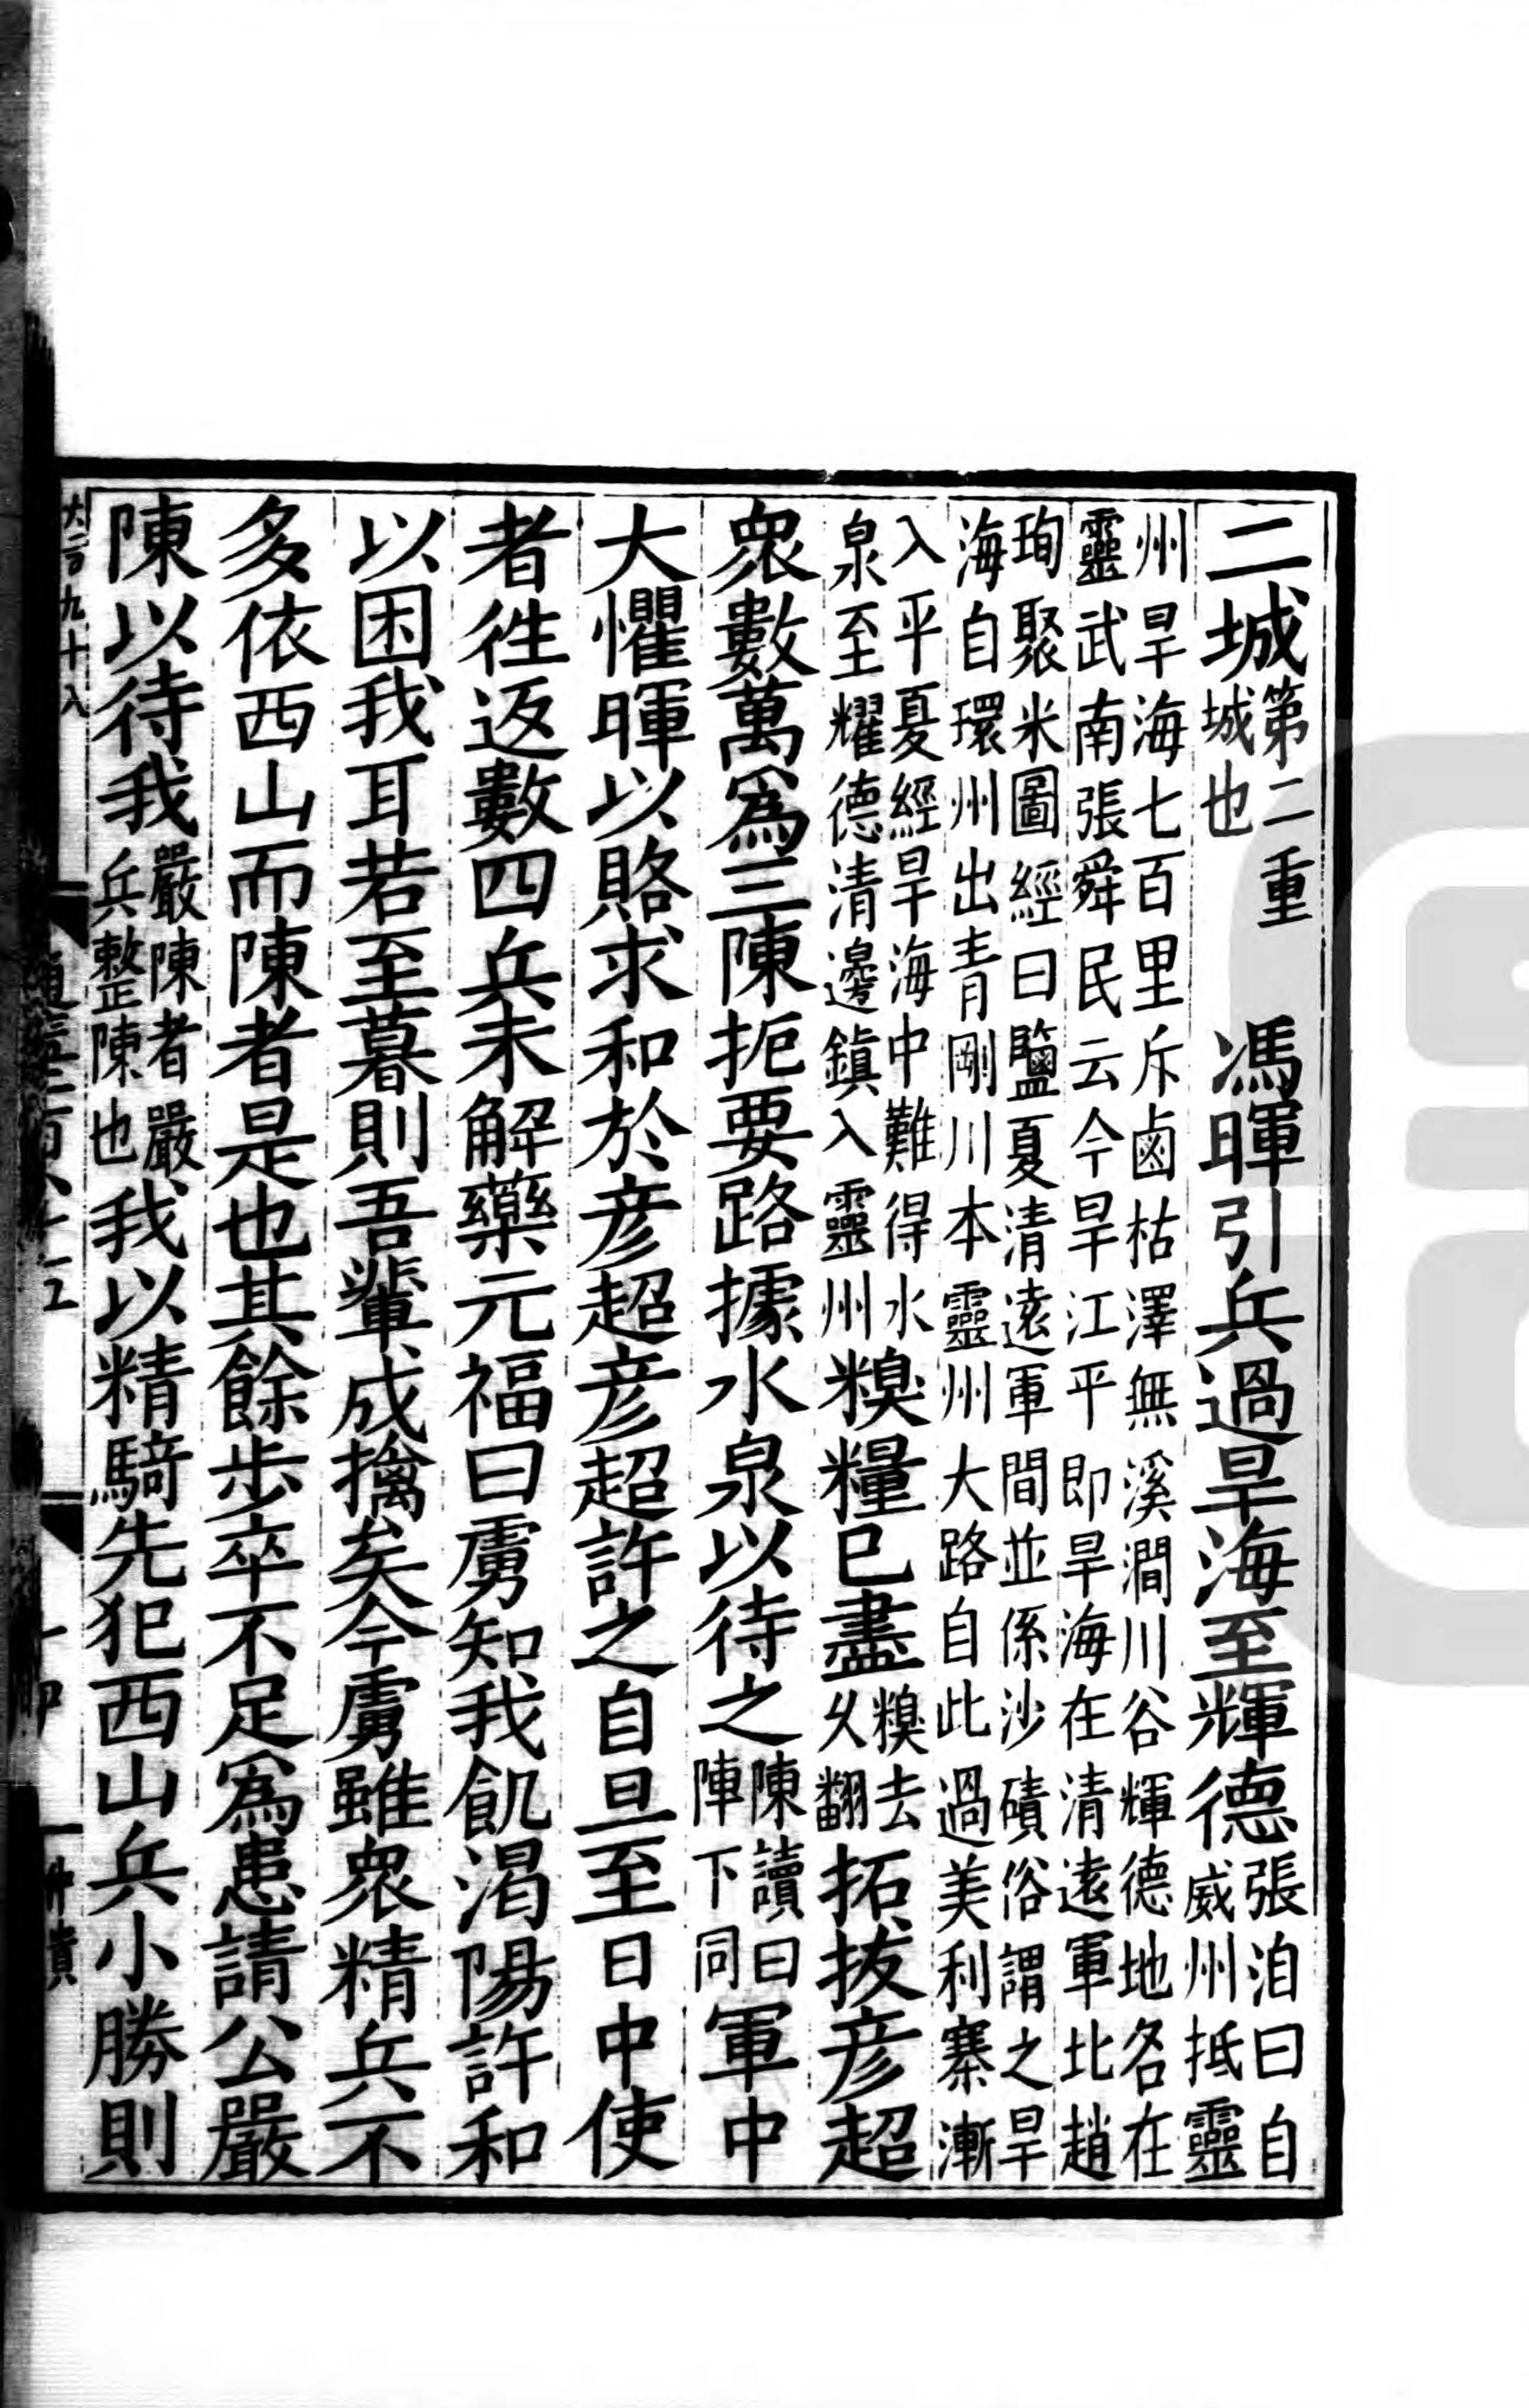 二城第二重城也　馮暉引兵過旱海至輝德張洎曰自威州抵靈
州旱海七百里斥鹵枯澤無溪澗川谷輝德地名在
靈武南張舜民云今旱江平即旱海在清遠軍北趙
珣聚米圖經曰鹽夏清遠軍間並係沙磧俗謂之旱
海自環州出青剛川本靈州大路自此過美利寨漸
入平夏經旱海中難得水泉至耀德清邊鎮入靈州糗糧已盡糗去久翻拓拔彦超
衆數萬爲三陳扼要路據水泉以待之陳讀曰陣下同軍中
大懼暉以賂求和於彦超彦超許之自旦至日中使
者徃返數四兵未解藥元福曰虜知我飢渇陽許和
以困我耳若至暮則吾輩成擒矣今虜雖衆精兵不
多依西山而陳者是也其餘歩卒不足爲患請公嚴
陳以待我嚴陳者嚴兵整陳也我以精騎先犯西山兵小勝則